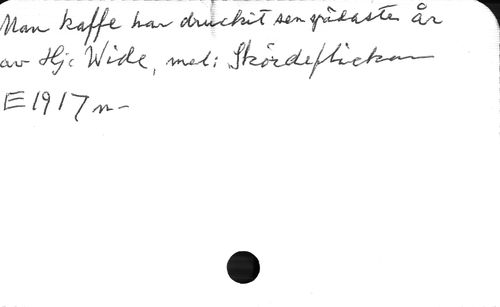 Man kaffe har druckit sen grådaste år
av Hj. Wide, mel: Skördeflickan
E1917 n-